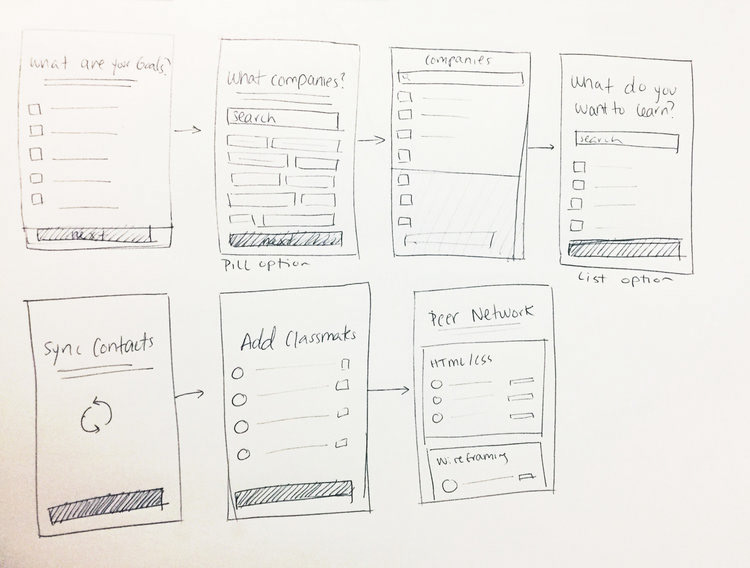 What are your Goals?
next
What companies?
search
next
Pill option
companies
What do you
want to learn?
search
List option
Sync Contacts
Add Classmates
Peer Network
HTML/CSS
Wireframing